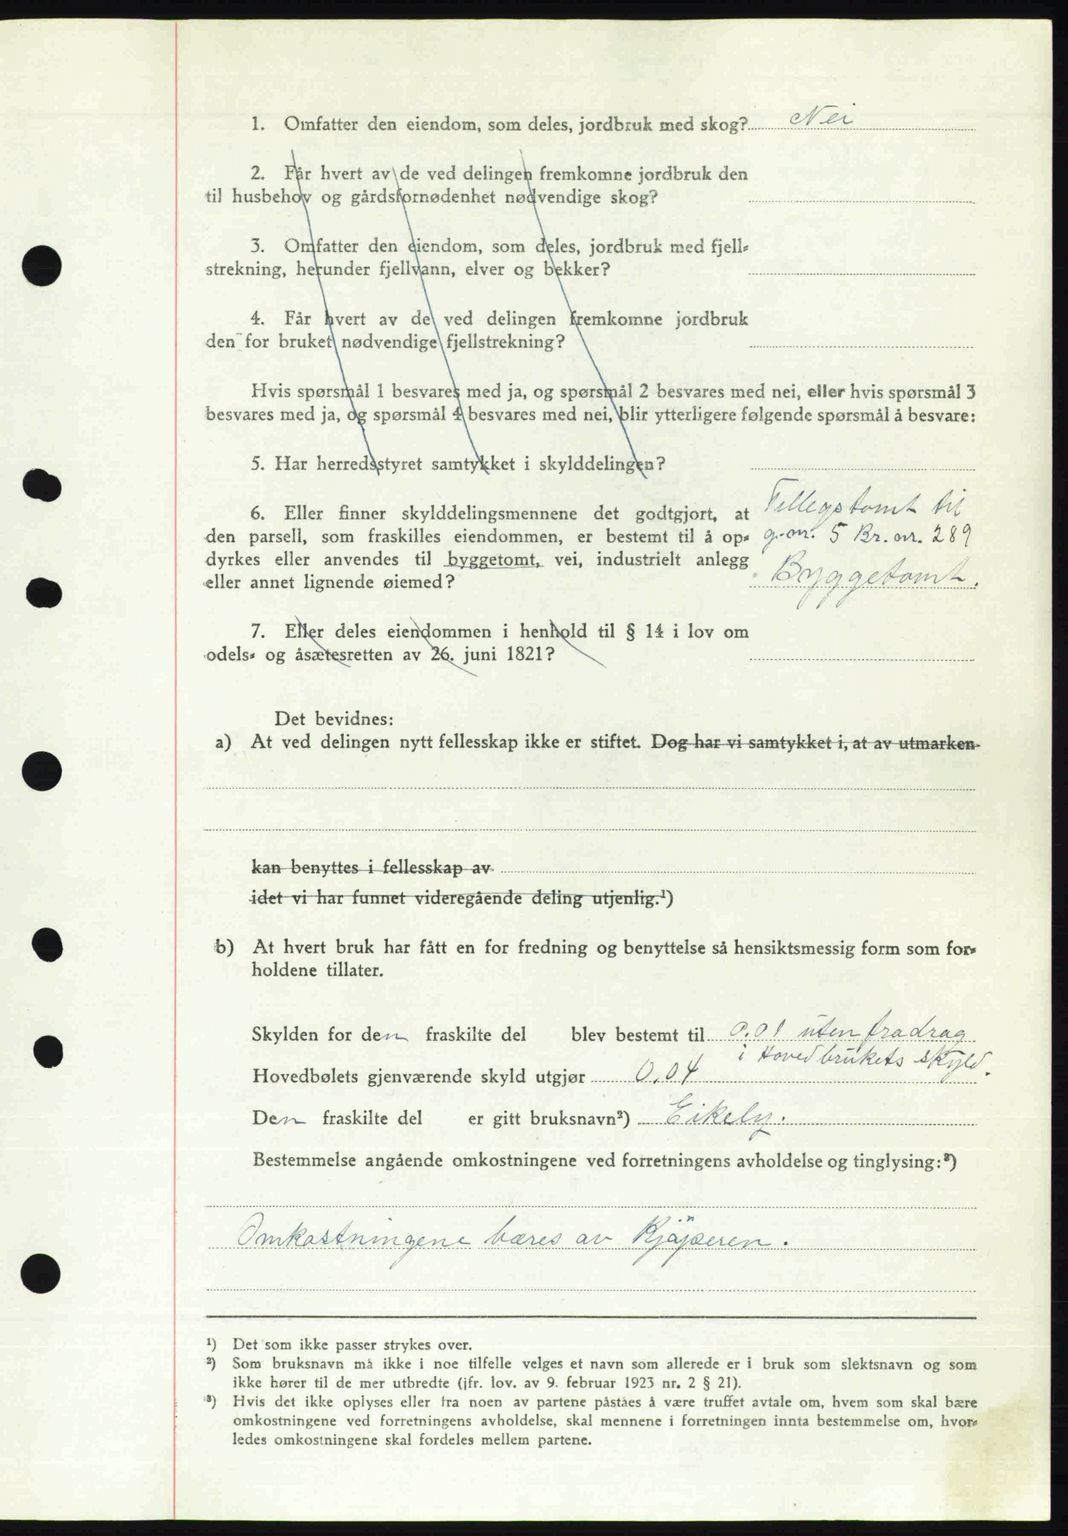 1. Omfatter den eiendom, som deles, jordbruk med skog? Nei
2. Får hvert av de ved delingen fremkomne jordbruk den
til husbehov og gårdsfornødenhet nødvendige skog?
3. Omfatter den eiendom, som deles, jordbruk med fjell-
strekning, herunder fjellvann, elver og bekker?
4. Får hvert av de ved delingen fremkomne jordbruk
den for bruket nødvendige fjellstrekning?
Hvis spørsmål 1 besvares med ja, og spørsmål 2 besvares med nei, eller hvis spørsmål 3
besvares med ja, og spørsmål 4 besvares med nei, blir ytterligere følgende spørsmål å besvare:
5. Har herredsstyret samtykket i skylddelingen?
6. Eller finner skylddelingsmennene det godtgjort, at
den parsell, som fraskilles eiendommen, er bestemt til å op-
dyrkes eller anvendes til byggetomt, vei, industrielt anlegg
eller annet lignende øiemed?
Tillegstomt til
g.nr. 5 Br.nr. 289
Byggetomt.
7. Eller deles eiendommen i henhold til § 14 i lov om
odels- og åsætesretten av 26. juni 1821?
Det bevidnes:
a) At ved delingen nytt fellesskap ikke er stiftet. Dog har vi samtykket i, at av utmarken
kan benyttes i fellesskap av
idet vi har funnet videregående deling utjenlig.¹)
b) At hvert bruk har fått en for fredning og benyttelse så hensiktsmessig form som for-
holdene tillater.
Skylden for den fraskilte del blev bestemt til 0.01 uten fradrag
i Hovedbrukets skyld.
Hovedbølets gjenværende skyld utgjør 0,04
Den fraskilte del er gitt bruksnavn²) Eikely.
Bestemmelse angående omkostningene ved forretningens avholdelse og tinglysing:³)
Omkostningene bæres av Kjøperen.
¹) Det som ikke passer strykes over.
²) Som bruksnavn må ikke i noe tilfelle velges et navn som allerede er i bruk som slektsnavn og som
ikke hører til de mer utbredte (jfr. lov. av 9. februar 1923 nr. 2 § 21).
³) Hvis det ikke oplyses eller fra noen av partene påståes å være truffet avtale om, hvem som skal bære
omkostningene ved forretningens avholdelse, skal mennene i forretningen innta bestemmelse om, hvor-
ledes omkostningene skal fordeles mellem partene.